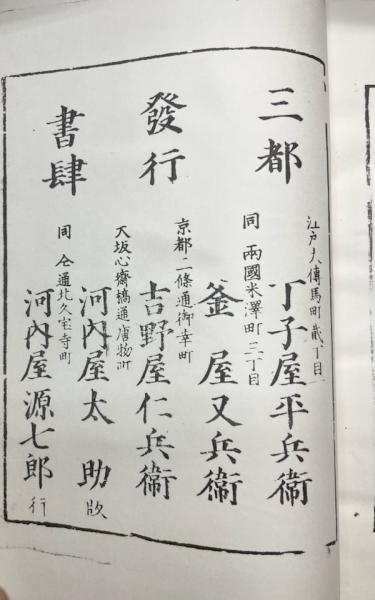 三都
發行
書肆
江戸大傳馬町貮丁目
丁子屋平兵衞
同 兩國米澤町三丁目
釜屋又兵衞
京都二條通御幸町
吉野屋仁兵衞
大坂心齋橋通唐物町
河内屋太助版
同 仝通北久宝寺町
河内屋源七郎行